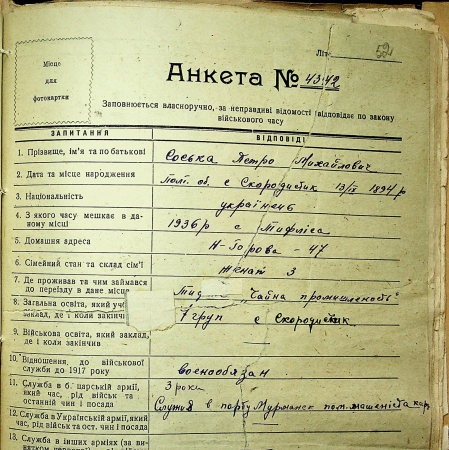 Літ.
52
Місце
для
фотокартки
Анкета № 4342
Заповнюється власноручно, за неправдиві відомості відповідає по закону
військового часу
ЗАПИТАННЯ ВІДПОВІДІ
1. Прізвище, ім'я та по батькові Соська Петро Михайлович
2. Дата та місце народження Полт. об. с Скородистик 13/IX 1894 р
3. Національність українець
4. З якого часу мешкає в да-
ному місці 1936 р с Тифліса
5. Домашня адреса Н-Горова - 47
6. Сімейний стан та склад сім'ї женат 3
7. Де проживав та чим займався
до переїзду в дане місце "Чайна промышленость"
8. Загальна освіта, який учб.
заклад, де і коли закінчив 7 груп с Скородистик
9. Військова освіта, який заклад,
де і коли закінчив
10. Відношення до військової
служби до 1917 року военообязан
11. Служба в б. царській армії,
який час, рід військ та
останній чин і посада 3 роки
Служив в порту Мурманск пом. машеніста
12. Служба в Українській армії, який
час, рід військ та ост. чин і посада
13. Служба в інших арміях (за ви-